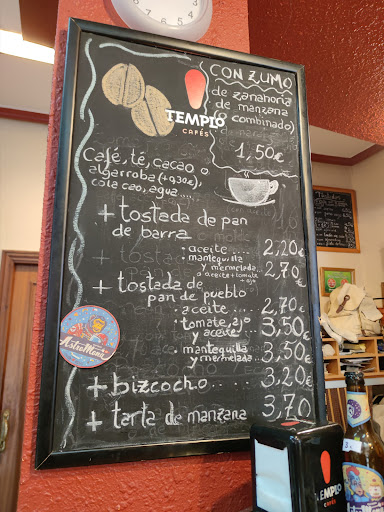 TEMPLO
CAFÉS
CON ZUMO
de zanahoria
de manzana
combinado)
1,50€
Café, té, cacao o
algarroba (+0,30€),
cola cao, agua....
+ tostada de pan
de barra
• aceite... 2,20€
• mantequilla
y mermelada.. 2,70€
o aceite + tomate
+ ajo
+ tostada de
pan de pueblo
• aceite... 2,70€
• tomate, ajo
y aceite... 3,50€
• mantequilla
y mermelada... 3,50€
+ bizcocho... 3,20€
+ tarta de manzana 3,70€
TEMPLO
CAFÉS